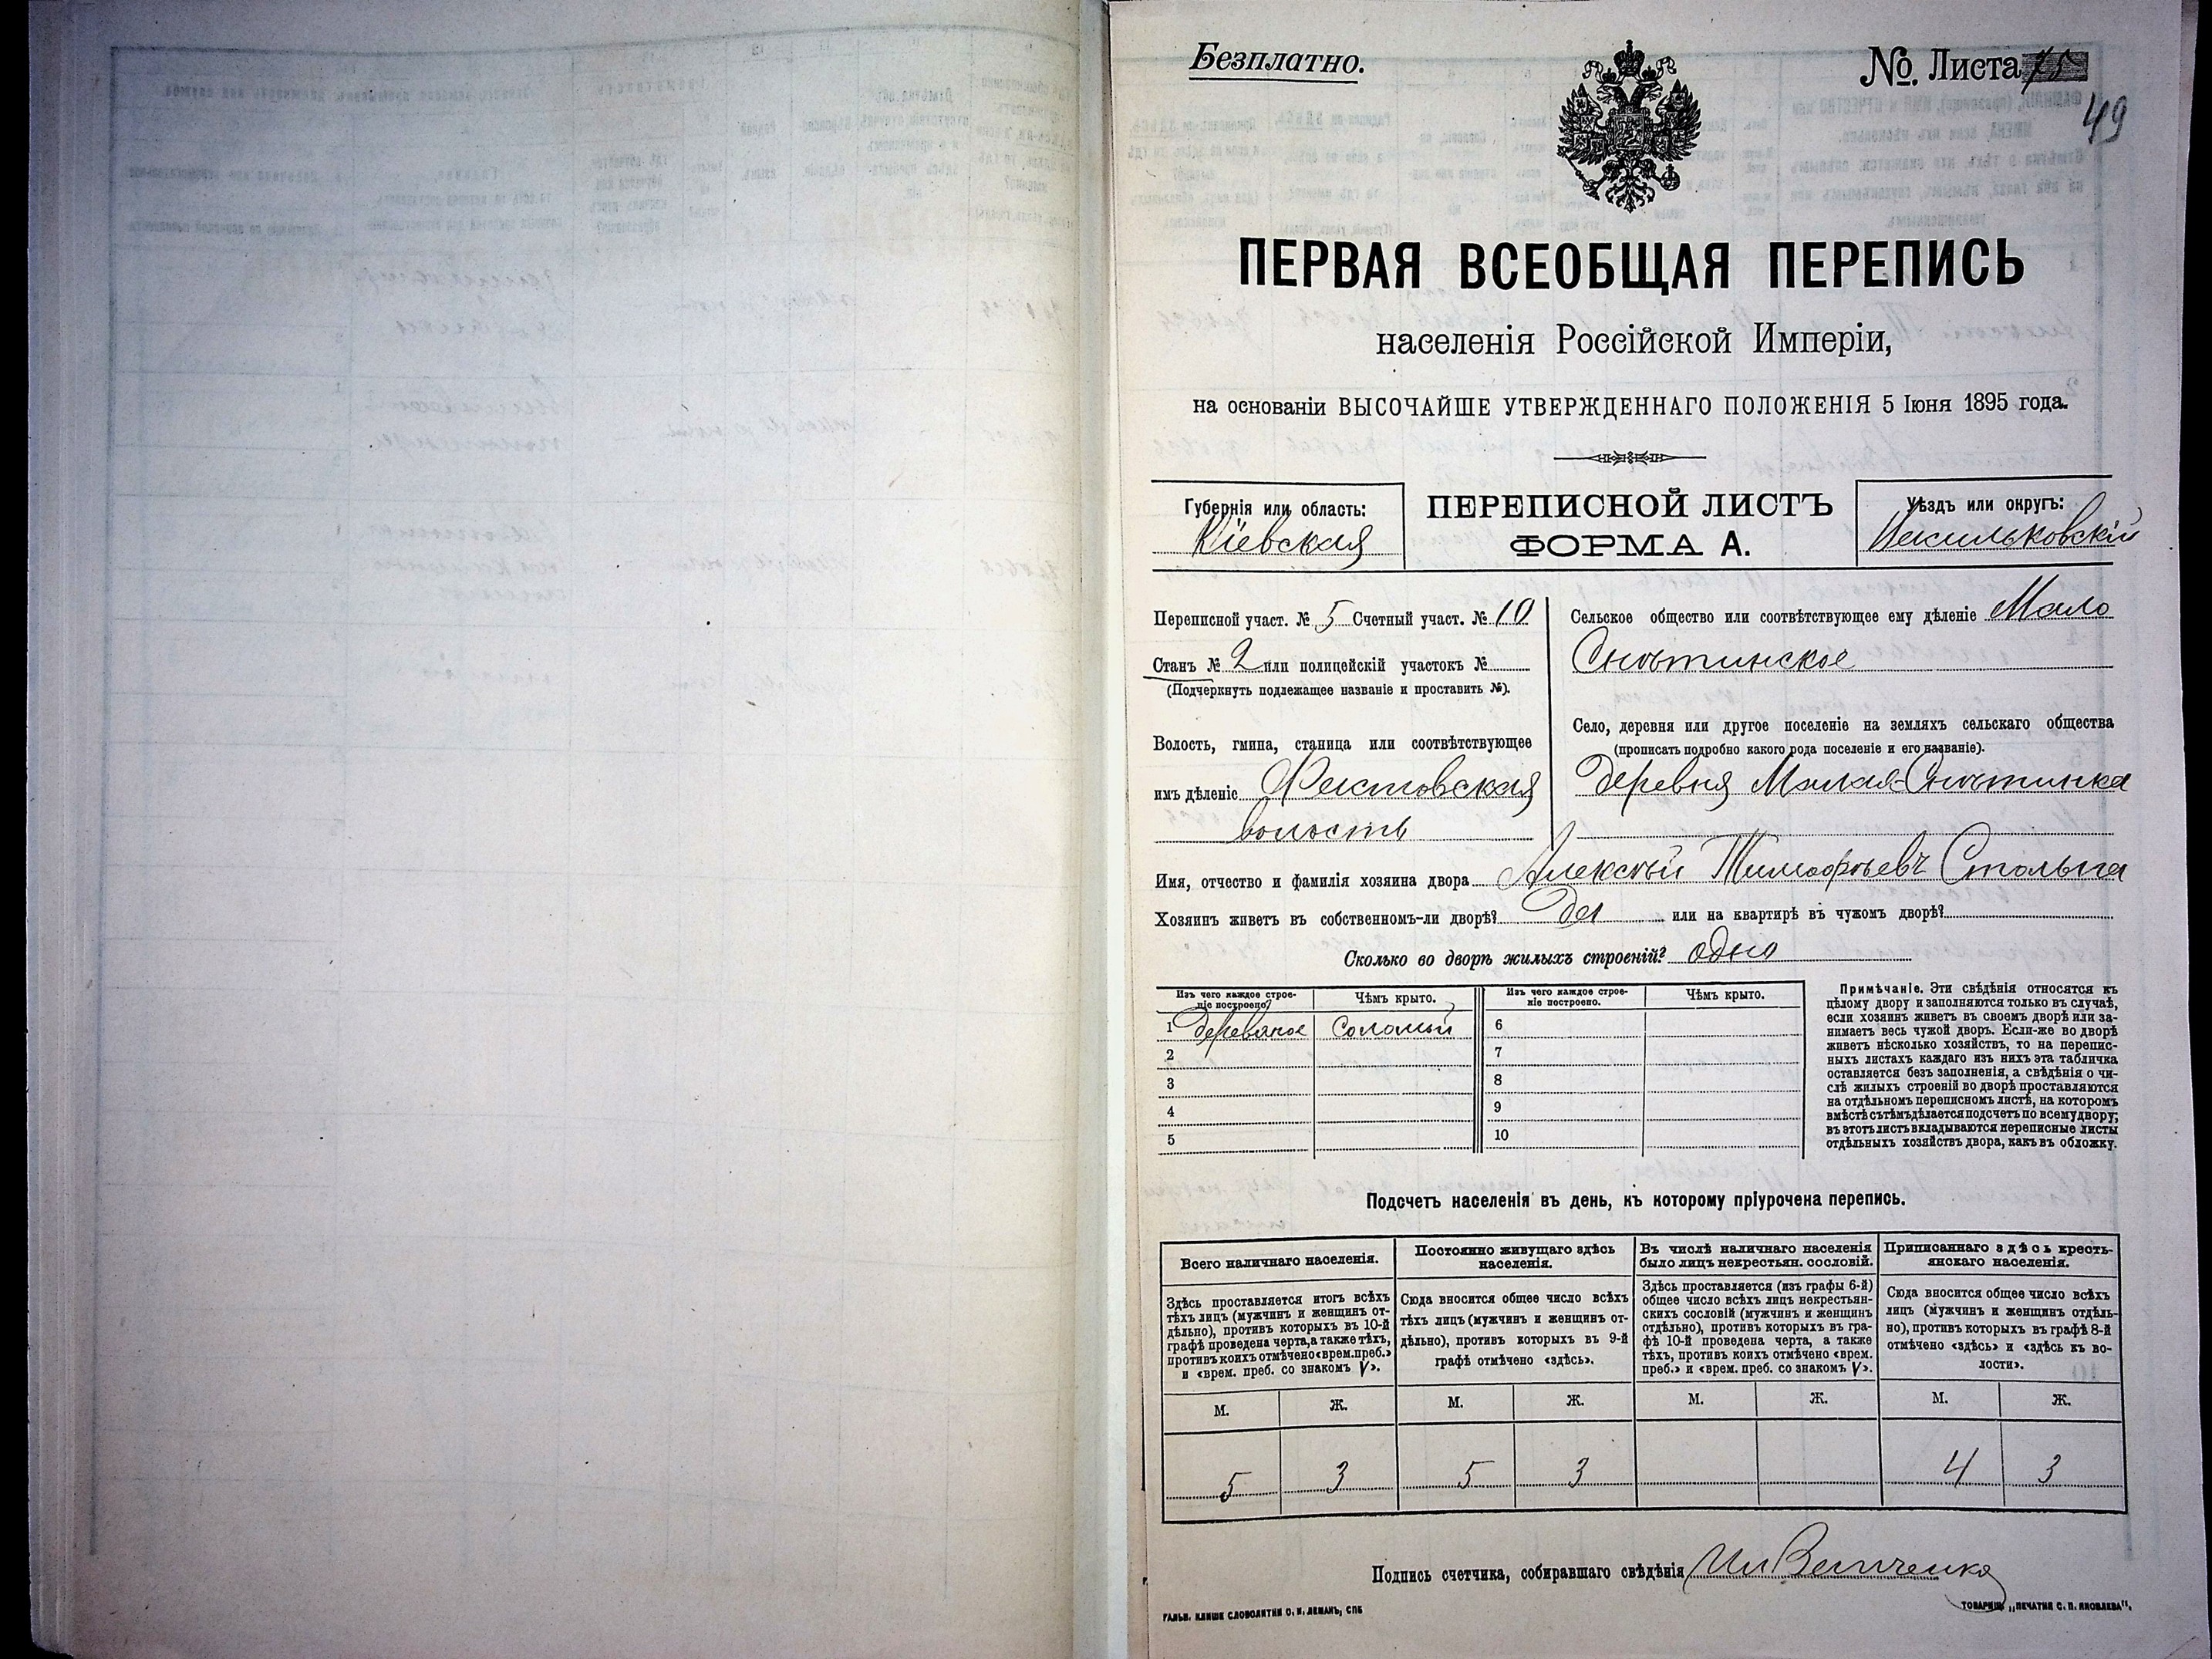 Безплатно.
№ Листа 75
49
ПЕРВАЯ ВСЕОБЩАЯ ПЕРЕПИСЬ
населенія Россійской Имперіи,
на основаніи ВЫСОЧАЙШЕ УТВЕРЖДЕННАГО ПОЛОЖЕНІЯ 5 Іюня 1895 года.
Губернія или область:
Кіевская
ПЕРЕПИСНОЙ ЛИСТЪ
ФОРМА А.
Уѣздъ или округъ:
Васильковскій
Переписной участ. № 5 Счетный участ. № 10
Станъ № 2 или полицейскій участокъ №
(Подчеркнуть подлежащее названіе и проставить №).
Волость, гмина, станица или соотвѣтствующее
имъ дѣленіе Фастовская
волость
Сельское общество или соотвѣтствующее ему дѣленіе Мало
Снѣтинское
Село, деревня или другое поселеніе на земляхъ сельскаго общества
(прописать подробно какого рода поселеніе и его названіе).
деревня Малая-Снѣтинка
Имя, отчество и фамилія хозяина двора Алексѣй Тимофѣевъ
Хозяинъ живетъ въ собственномъ-ли дворѣ? Да или на квартирѣ въ чужомъ дворѣ?
Сколько во дворѣ жилыхъ строеній? одно
Изъ чего каждое строе-
ніе построено?
Чѣмъ крыто.
Изъ чего каждое строе-
ніе построено.
Чѣмъ крыто.
1 деревяное соломой 6
2 7
3 8
4 9
5 10
Примѣчаніе. Эти свѣдѣнія относятся къ
цѣлому двору и заполняются только въ случаѣ,
если хозяинъ живетъ въ своемъ дворѣ или за-
нимаетъ весь чужой дворъ. Если-же во дворѣ
живетъ нѣсколько хозяйствъ, то на перепис-
ныхъ листахъ каждаго изъ нихъ эта табличка
оставляется безъ заполненія, а свѣдѣнія о чи-
слѣ жилыхъ строеній во дворѣ проставляются
на отдѣльномъ переписномъ листѣ, на которомъ
вмѣстѣ съ тѣмъ дѣлается подсчетъ по всему двору;
въ этотъ листъ вкладываются переписные листы
отдѣльныхъ хозяйствъ двора, какъ въ обложку.
Подсчетъ населенія въ день, къ которому пріурочена перепись.
Всего наличнаго населенія.
Здѣсь проставляется итогъ всѣхъ
тѣхъ лицъ (мужчинъ и женщинъ от-
дѣльно), противъ которыхъ въ 10-й
графѣ проведена черта, а также тѣхъ,
противъ коихъ отмѣчено «врем. преб.»
и «врем. преб. со знакомъ V».
Постоянно живущаго здѣсь
населенія.
Сюда вносится общее число всѣхъ
тѣхъ лицъ (мужчинъ и женщинъ от-
дѣльно), противъ которыхъ въ 9-й
графѣ отмѣчено «здѣсь».
Въ числѣ наличнаго населенія
было лицъ некрестьян. сословій.
Здѣсь проставляется (изъ графы 6-й)
общее число всѣхъ лицъ некрестьян-
скихъ сословій (мужчинъ и женщинъ
отдѣльно), противъ которыхъ въ гра-
фѣ 10-й проведена черта, а также
тѣхъ, противъ коихъ отмѣчено «врем.
преб.» и «врем. преб. со знакомъ V».
Приписаннаго здѣсь кресть-
янскаго населенія.
Сюда вносится общее число всѣхъ
лицъ (мужчинъ и женщинъ отдѣль-
но), противъ которыхъ въ графѣ 8-й
отмѣчено «здѣсь» и «здѣсь къ во-
лости».
М. Ж. М. Ж. М. Ж. М. Ж.
5 3 5 3 4 3
Подпись счетчика, собиравшаго свѣдѣнія
ГАЛЬВ. КЛИШЕ СЛОВОЛИТНИ О. И. ЛЕМАНЪ, СПБ
ТОВАРИЩ. „ПЕЧАТНЯ С. П. ЯКОВЛЕВА“.